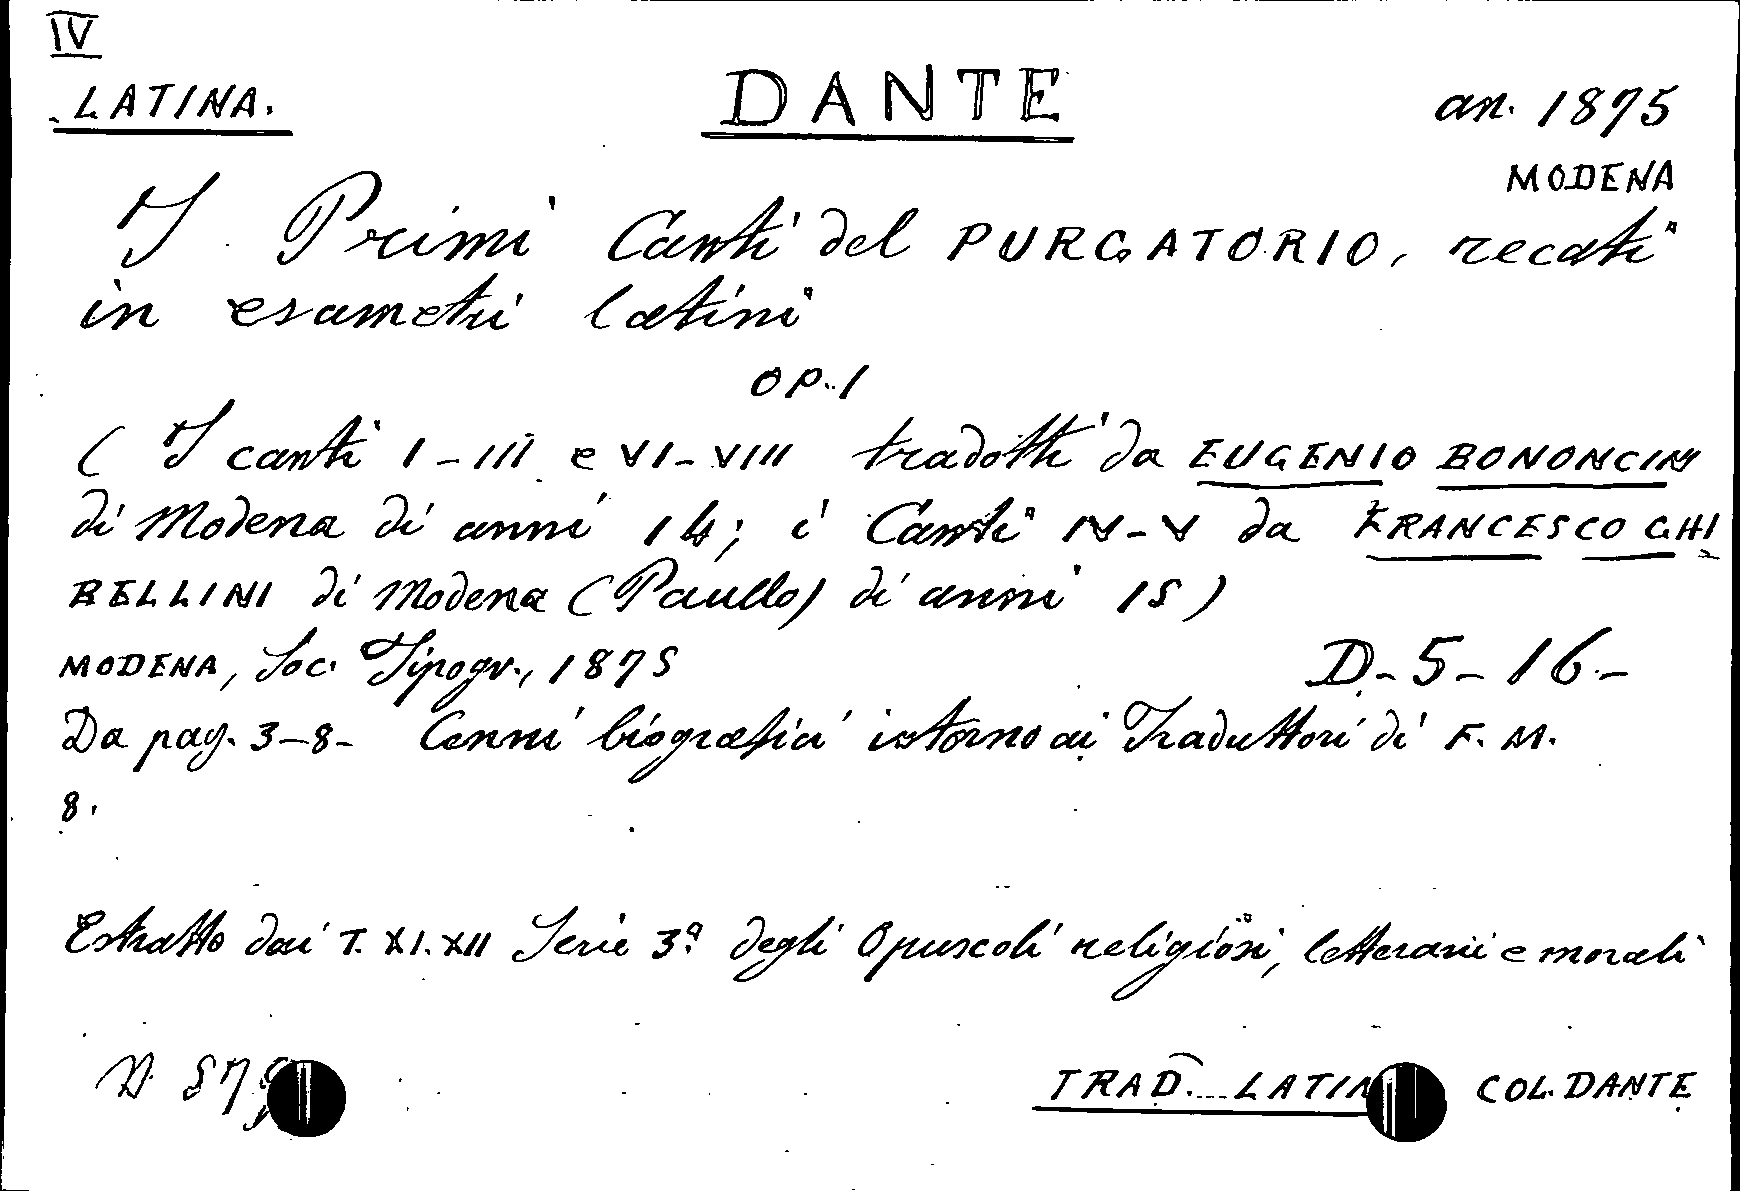 IV
LATINA.
DANTE
an. 1875
MODENA
I Primi Canti del PURGATORIO, recati
in esametri latini
OP. 1
( I canti I-III e VI-VIII tradotti da EUGENIO BONONCINI
di Modena di anni 14; i Canti IV-V da FRANCESCO GHI
BELLINI di Modena (Paullo) di anni 15)
MODENA, Soc. Tipogr., 1875
D-5-16.-
Da pag. 3-8- Cenni biografici intorno ai Traduttori di F. M.
8.
Estratto dai T. XI. XII Serie 3ª degli Opuscoli religiosi, letterarii e morali
TRAD. LATIN
COL. DANTE